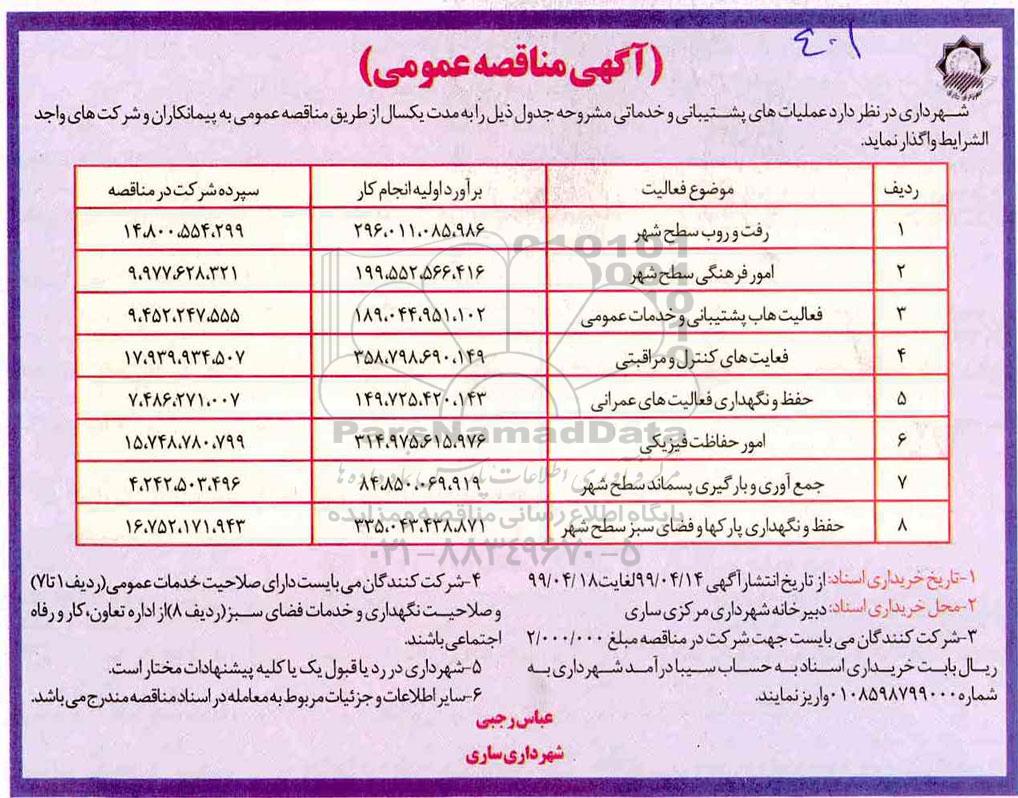 ۴۰۱
(آگهی مناقصه عمومی)
شهرداری در نظر دارد عملیات های پشتیبانی و خدماتی مشروحه جدول ذیل را به مدت یکسال از طریق مناقصه عمومی به پیمانکاران و شرکت های واجد
الشرایط واگذار نماید.
ردیف موضوع فعالیت برآورد اولیه انجام کار سپرده شرکت در مناقصه
۱ رفت و روب سطح شهر ۲۹۶،۰۱۱،۰۸۵،۹۸۶ ۱۴،۸۰۰،۵۵۴،۲۹۹
۲ امور فرهنگی سطح شهر ۱۹۹،۵۵۲،۵۶۶،۴۱۶ ۹،۹۷۷،۶۲۸،۳۲۱
۳ فعالیت هاب پشتیبانی و خدمات عمومی ۱۸۹،۰۴۴،۹۵۱،۱۰۲ ۹،۴۵۲،۲۴۷،۵۵۵
۴ فعایت های کنترل و مراقبتی ۳۵۸،۷۹۸،۶۹۰،۱۴۹ ۱۷،۹۳۹،۹۳۴،۵۰۷
۵ حفظ و نگهداری فعالیت های عمرانی ۱۴۹،۷۲۵،۴۲۰،۱۴۳ ۷،۴۸۶،۲۷۱،۰۰۷
۶ امور حفاظت فیزیکی ۳۱۴،۹۷۵،۶۱۵،۹۷۶ ۱۵،۷۴۸،۷۸۰،۷۹۹
۷ جمع آوری و بارگیری پسماند سطح شهر ۸۴،۸۵۰،۰۶۹،۹۱۹ ۴،۲۴۲،۵۰۳،۴۹۶
۸ حفظ و نگهداری پارکها و فضای سبز سطح شهر ۳۳۵،۰۴۳،۴۳۸،۸۷۱ ۱۶،۷۵۲،۱۷۱،۹۴۳
ParsNamadData
پایگاه اطلاع رسانی مناقصه و مزایده
۰۲۱-۸۸۳۴۹۶۷۰-۵
۱-تاریخ خریداری اسناد: از تاریخ انتشار آگهی ۹۹/۰۴/۱۴ لغایت ۹۹/۰۴/۱۸
۲-محل خریداری اسناد: دبیرخانه شهرداری مرکزی ساری
۳-شرکت کنندگان می بایست جهت شرکت در مناقصه مبلغ ۲/۰۰۰/۰۰۰
ریال بابت خریداری اسناد به حساب سیبا درآمد شهرداری به
شماره ۰۱۰۸۵۹۸۷۹۹۰۰۰ واریز نمایند.
۴-شرکت کنندگان می بایست دارای صلاحیت خدمات عمومی (ردیف ۱ تا ۷)
و صلاحیت نگهداری و خدمات فضای سبز (ردیف ۸) از اداره تعاون، کار و رفاه
اجتماعی باشند.
۵-شهرداری در رد یا قبول یک یا کلیه پیشنهادات مختار است.
۶-سایر اطلاعات و جزئیات مربوط به معامله در اسناد مناقصه مندرج می باشد.
عباس رجبی
شهرداری ساری